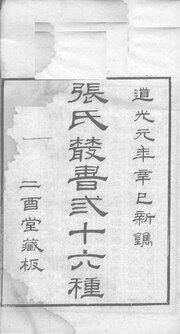 道光元年辛巳新鐫
張氏叢書弍十六種
二酉堂藏板